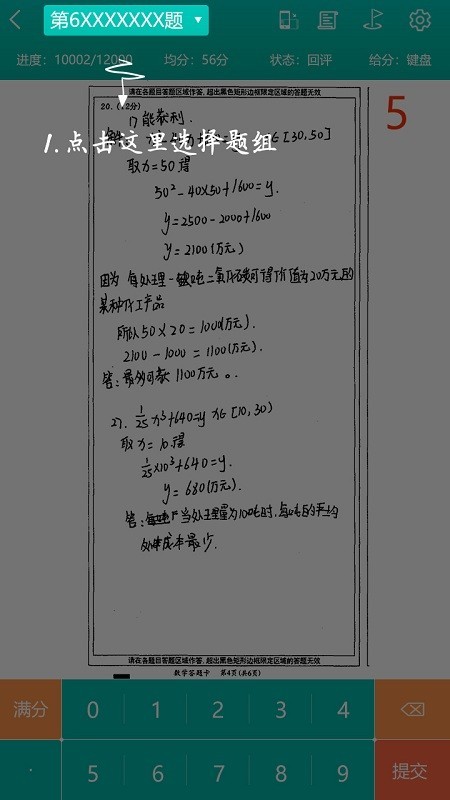 第6XXXXXXX题
进度：10002/12000 均分：56分 状态：回评 给分：键盘
请在各题目答题区域作答，超出黑色矩形边框限定区域的答题无效
20.（12分）
5
1)能获利.
1.点击这里选择题组
∈[30,50]
取x=50得
50²-40×50+1600=y.
y=2500-2000+1600
y=2100(万元)
因为 每处理一吨二氧化碳可得价值为20万元的
某种化工产品
所以50×20=1000(万元).
2100-1000=1100(万元).
答:最多可获1100万元。
2). 1/25 x³+640=y x∈[10,30)
取x=10得
1/25×10³+640=y.
y=680(万元).
答: 当处理量为10吨时,每吨的平均
处理成本最少.
请在各题目答题区域作答，超出黑色矩形边框限定区域的答题无效
数学答题卡 第4页(共6页)
满分 0 1 2 3 4
· 5 6 7 8 9 提交